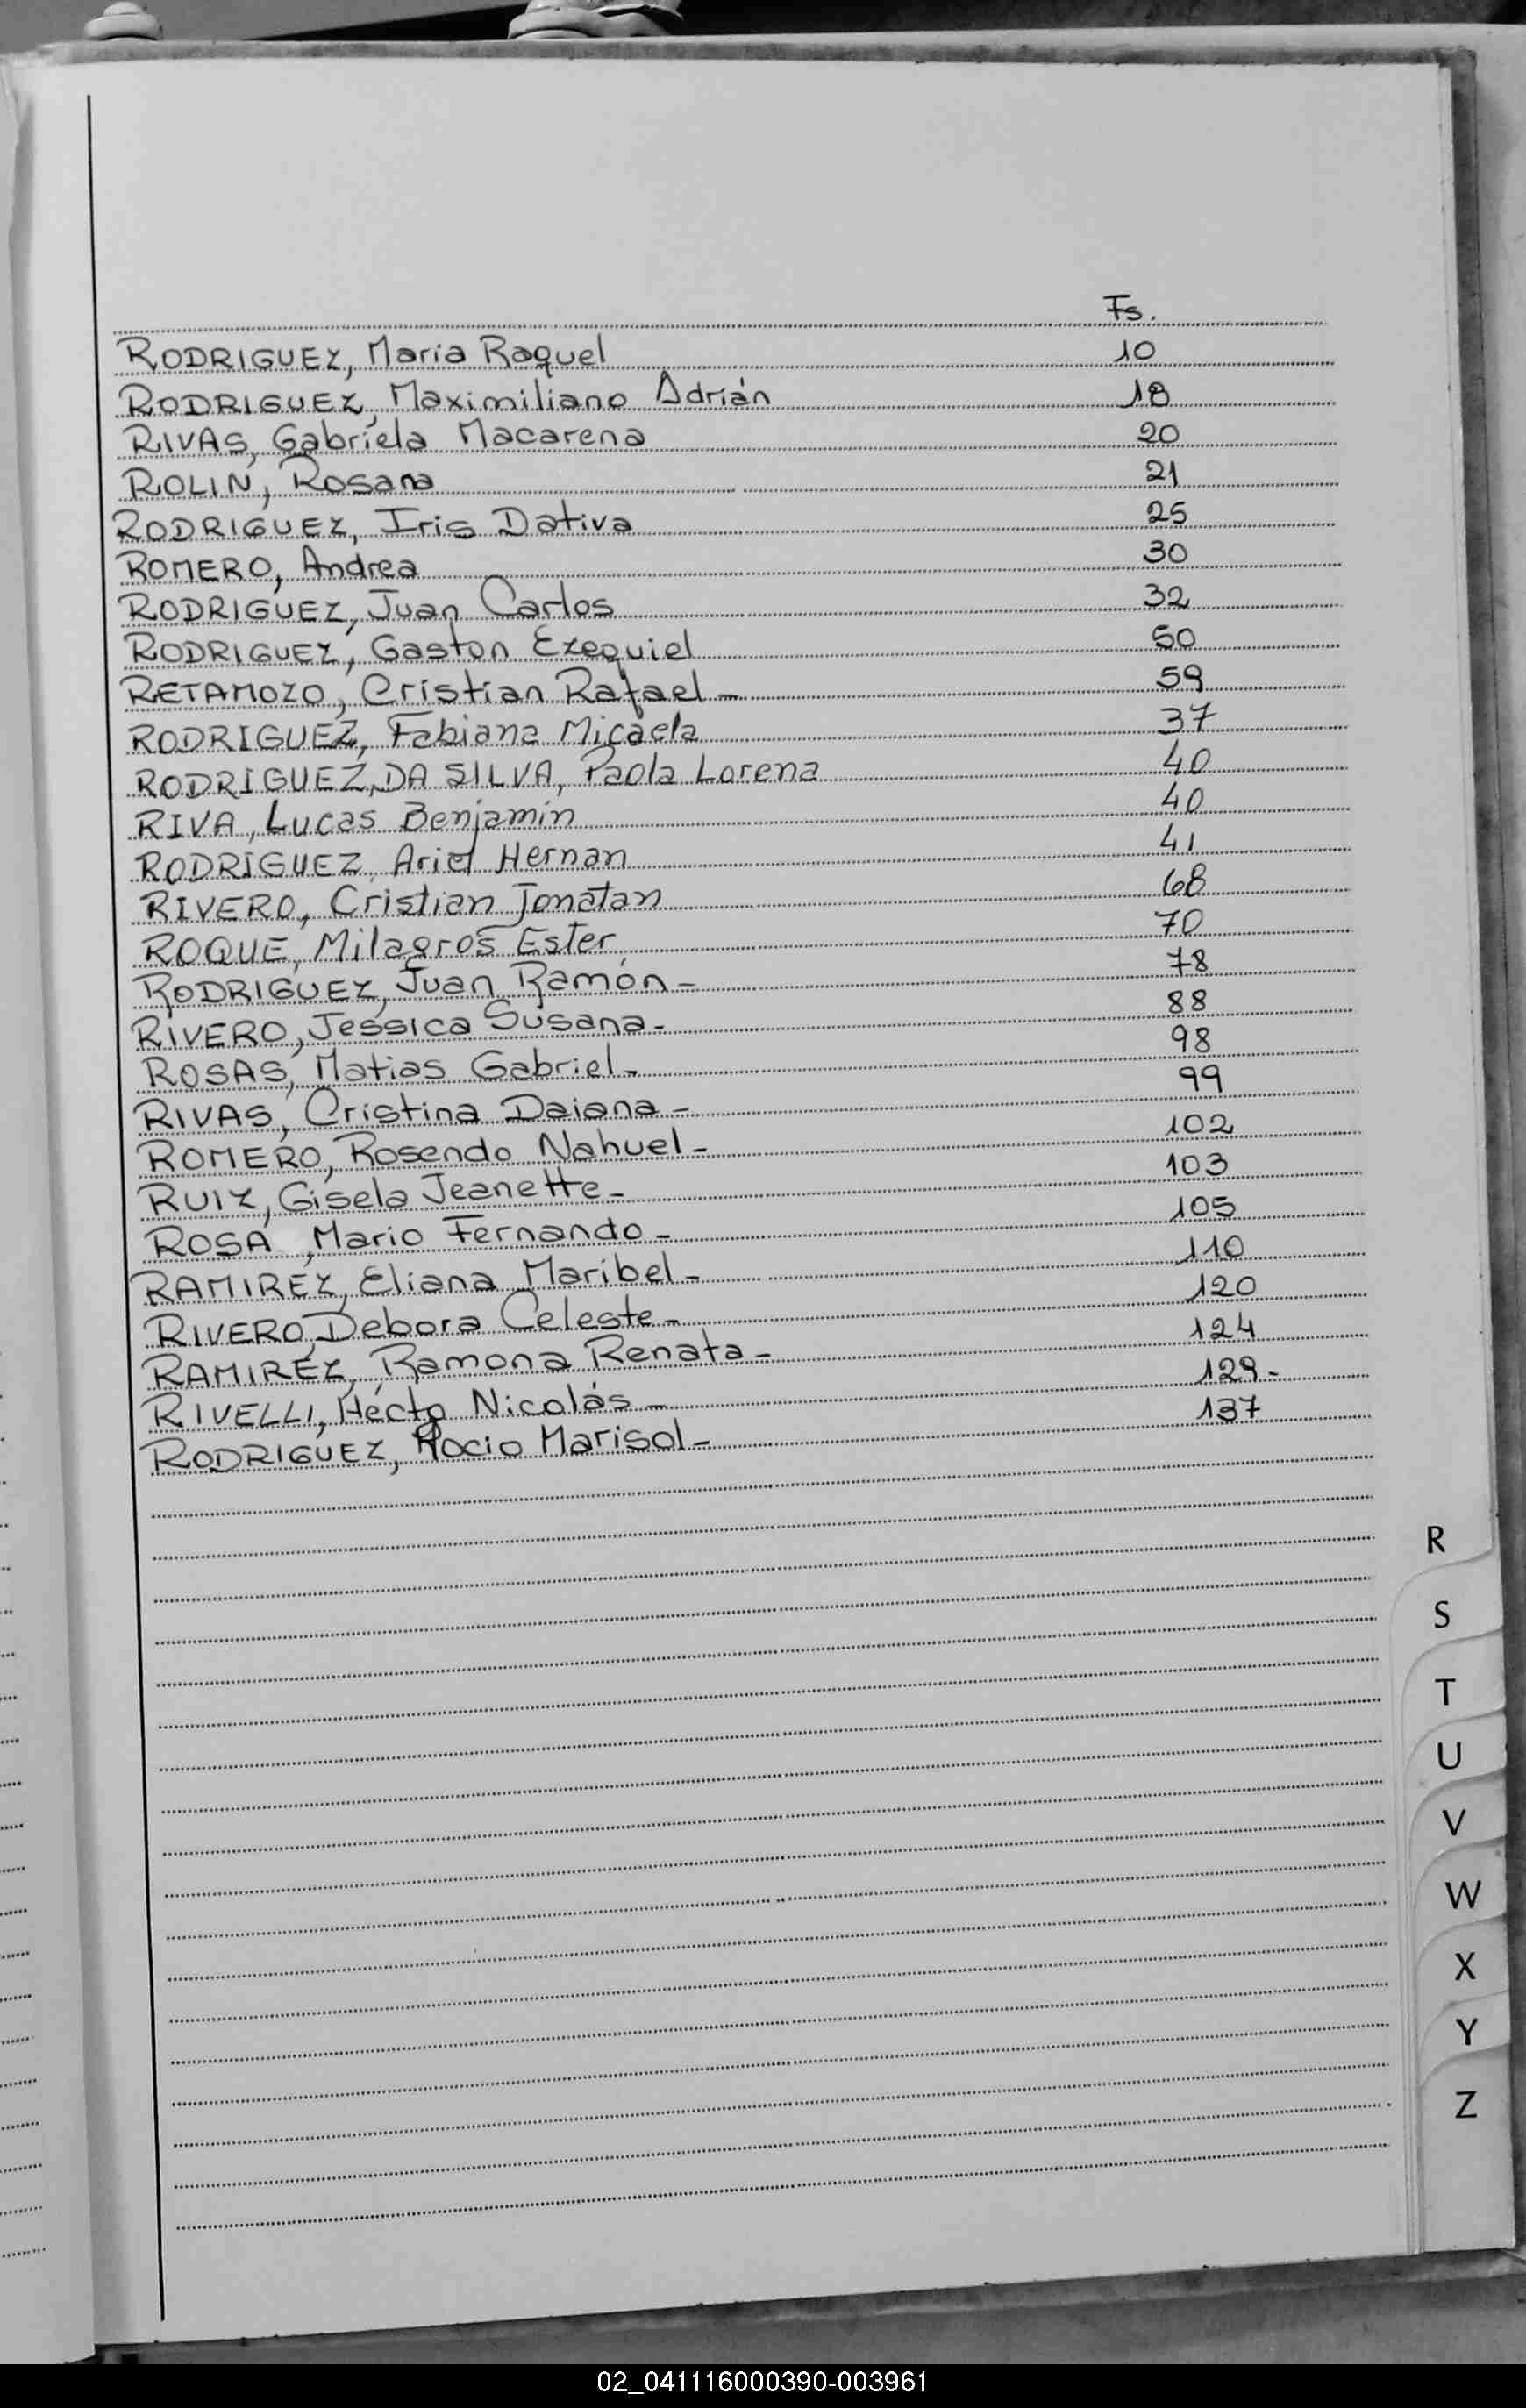 Fs.
RODRIGUEZ, Maria Raquel 10
RODRIGUEZ, Maximiliano Adrián 18
RIVAS, Gabriela Macarena 20
ROLIN, Rosana 21
RODRIGUEZ, Iris Dativa 25
ROMERO, Andrea 30
RODRIGUEZ, Juan Carlos 32
RODRIGUEZ, Gaston Ezequiel 50
RETAMOZO, Cristian Rafael - 59
RODRIGUEZ, Fabiana Micaela 37
RODRIGUEZ DA SILVA, Paola Lorena 40
RIVA, Lucas Benjamín 40
RODRIGUEZ, Ariel Hernan 41
RIVERO, Cristian Jonatan 68
ROQUE, Milagros Ester 70
RODRIGUEZ, Juan Ramón - 78
RIVERO, Jessica Susana - 88
ROSAS, Matias Gabriel - 98
RIVAS, Cristina Daiana - 99
ROMERO, Rosendo Nahuel - 102
RUIZ, Gisela Jeanette - 103
ROSA, Mario Fernando - 105
RAMIREZ, Eliana Maribel - 110
RIVERO, Debora Celeste - 120
RAMIREZ, Ramona Renata - 124
RIVELLI, Hécto Nicolás - 129 -
RODRIGUEZ, Rocio Marisol - 137
R
S
T
U
V
W
X
Y
Z
02_041116000390-003961